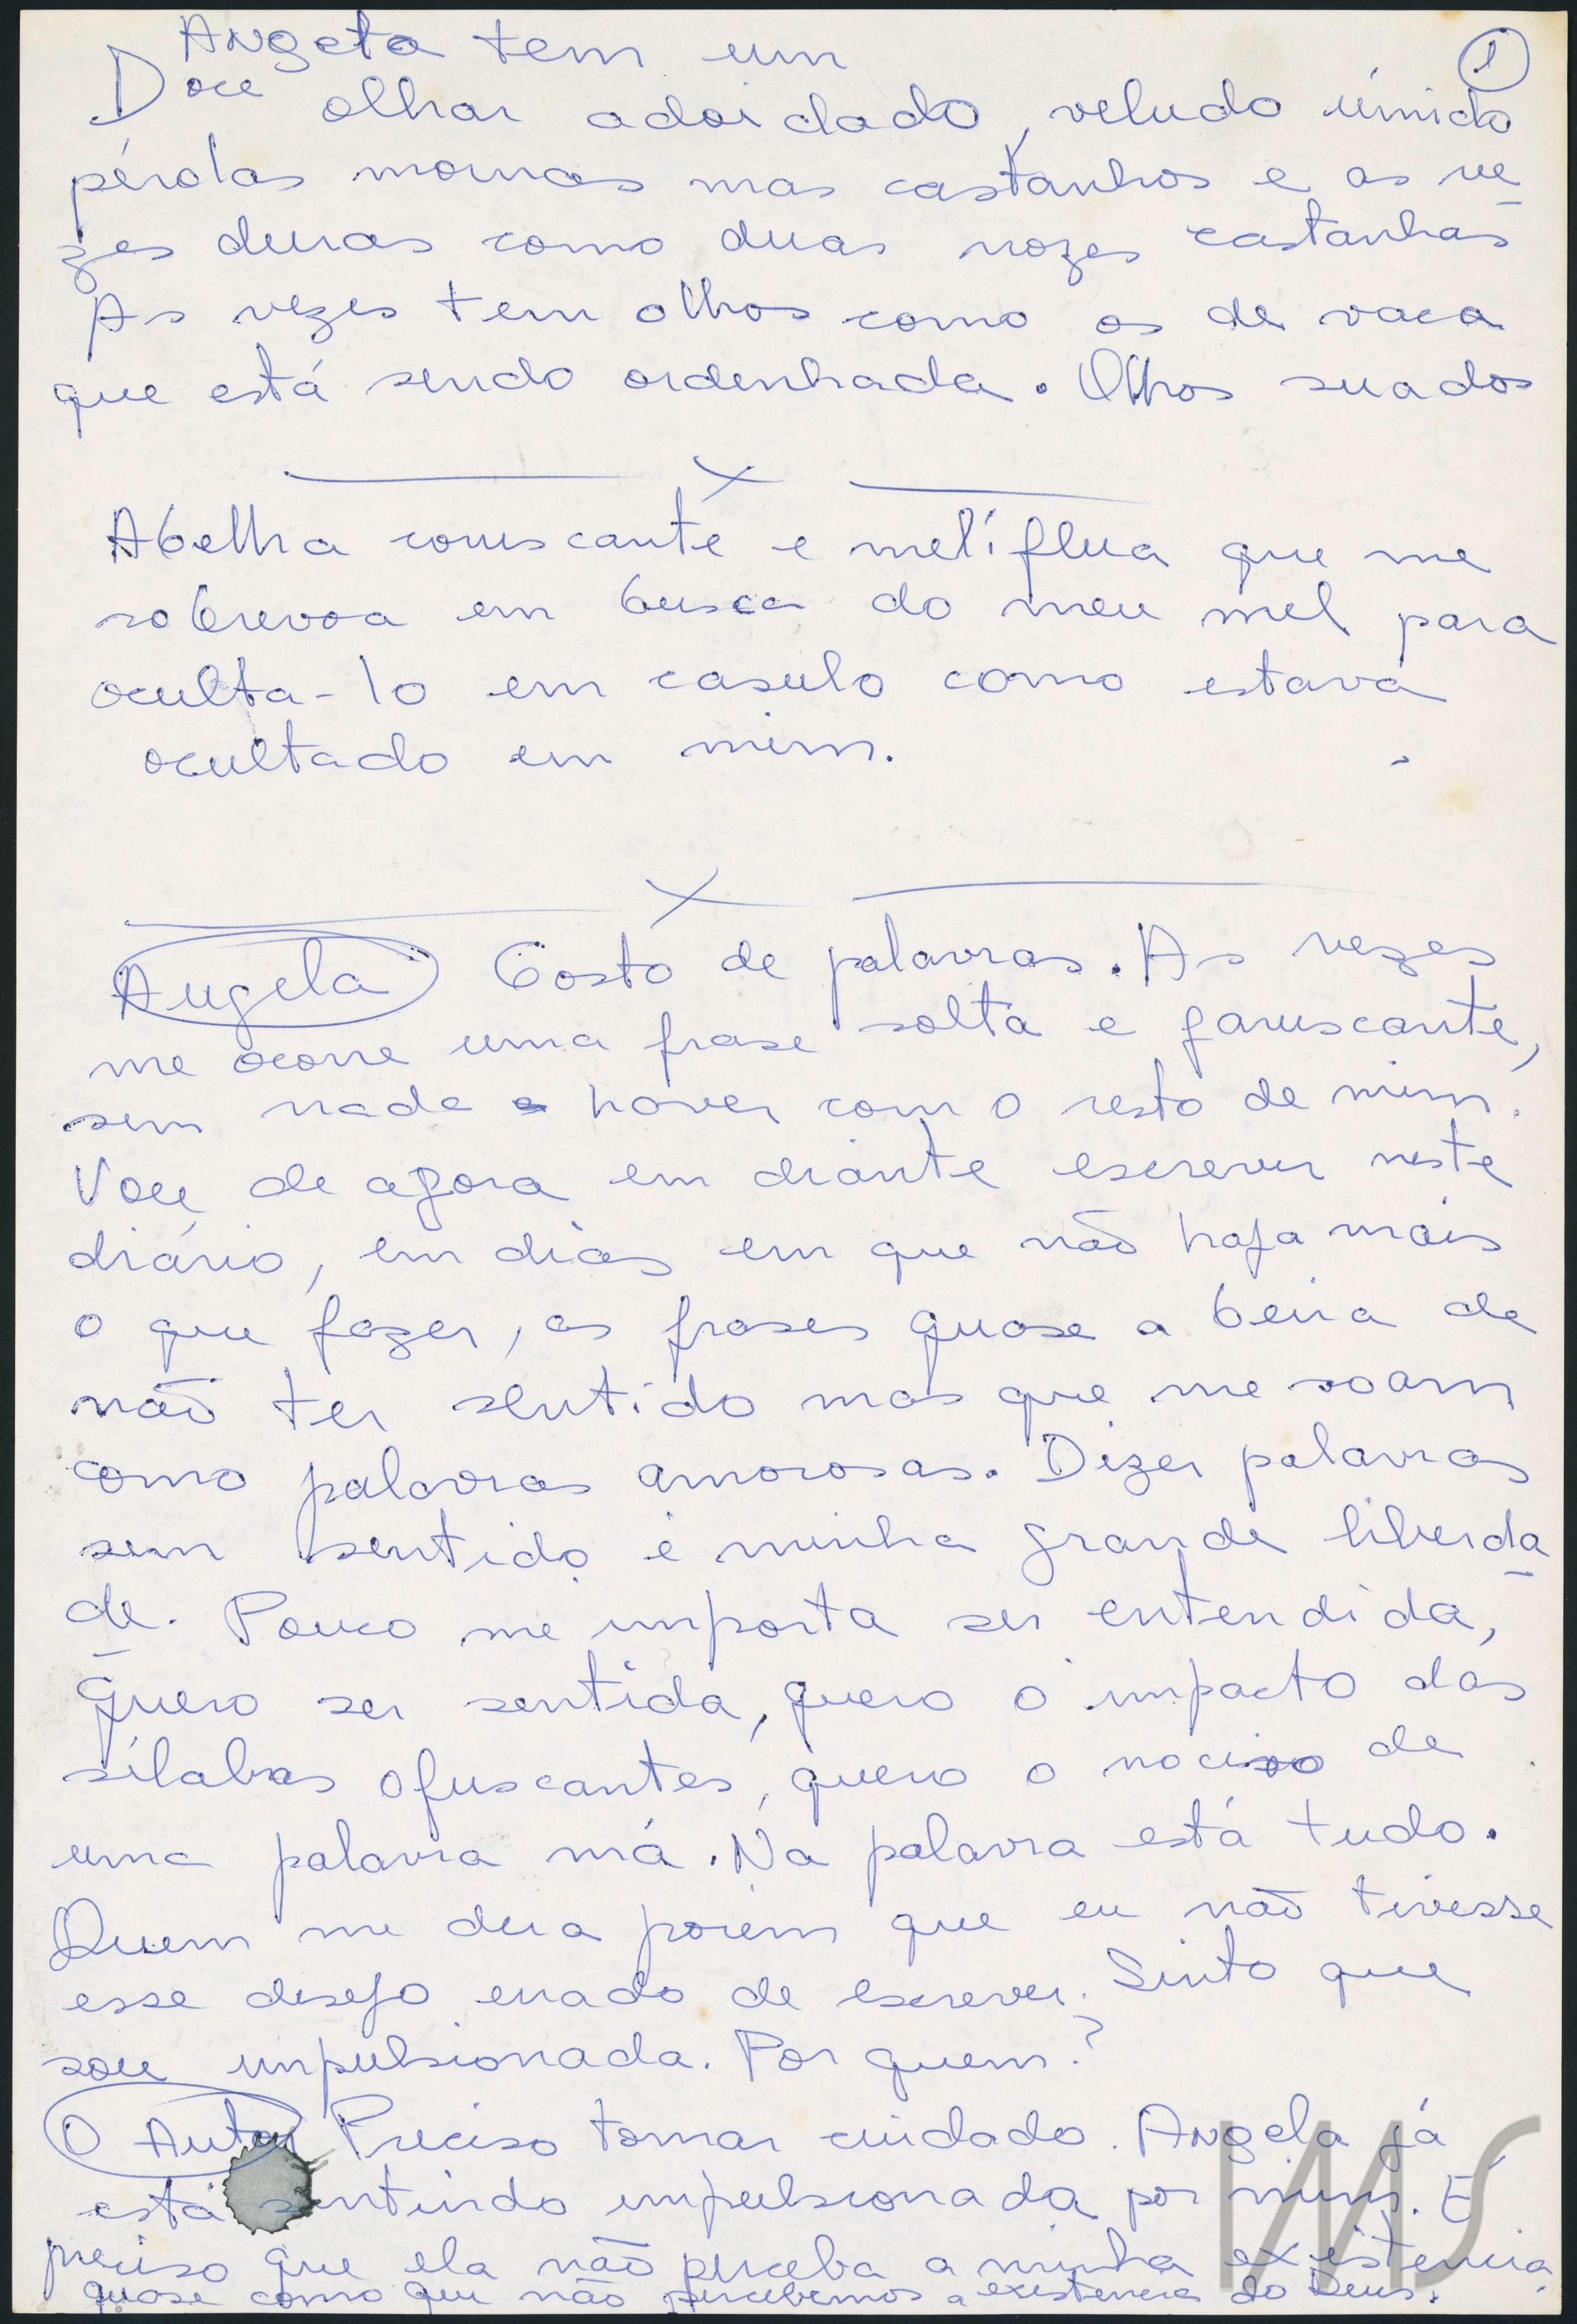 Angela tem um
①
Doce olhar adoidado, veludo úmido
pérolas mornas mas castanhos e as ve-
zes duras como duas nozes castanhas
As vezes tem olhos como os de vaca
que está sendo ordenhada. Olhos suados
X
Abelha coruscante e melíflua que me
sobrevoa em busca do meu mel para
oculta-lo em casulo como estava
ocultado em mim.
X
Angela Gosto de palavras. As vezes
me ocorre uma frase solta e faruscante,
sem nada a haver com o resto de mim.
Vou de agora em diante escrever neste
diário, em dias em que não haja mais
o que fazer, as frases quase a beira de
não ter sentido mas que me soam
como palavras amorosas. Dizer palavras
sem sentido é minha grande liberda-
de. Pouco me importa ser entendida,
quero ser sentida, quero o impacto das
sílabas ofuscantes, quero o nocivo de
uma palavra má. Na palavra está tudo.
Quem me dera porém que eu não tivesse
esse desejo errado de escrever. Sinto que
sou impulsionada. Por quem?
O Autor Preciso tomar cuidado. Angela já
está sentindo impulsionada por mim. É
preciso que ela não perceba a minha existencia,
quase como que não percebemos a existencia do Deus.
IMS